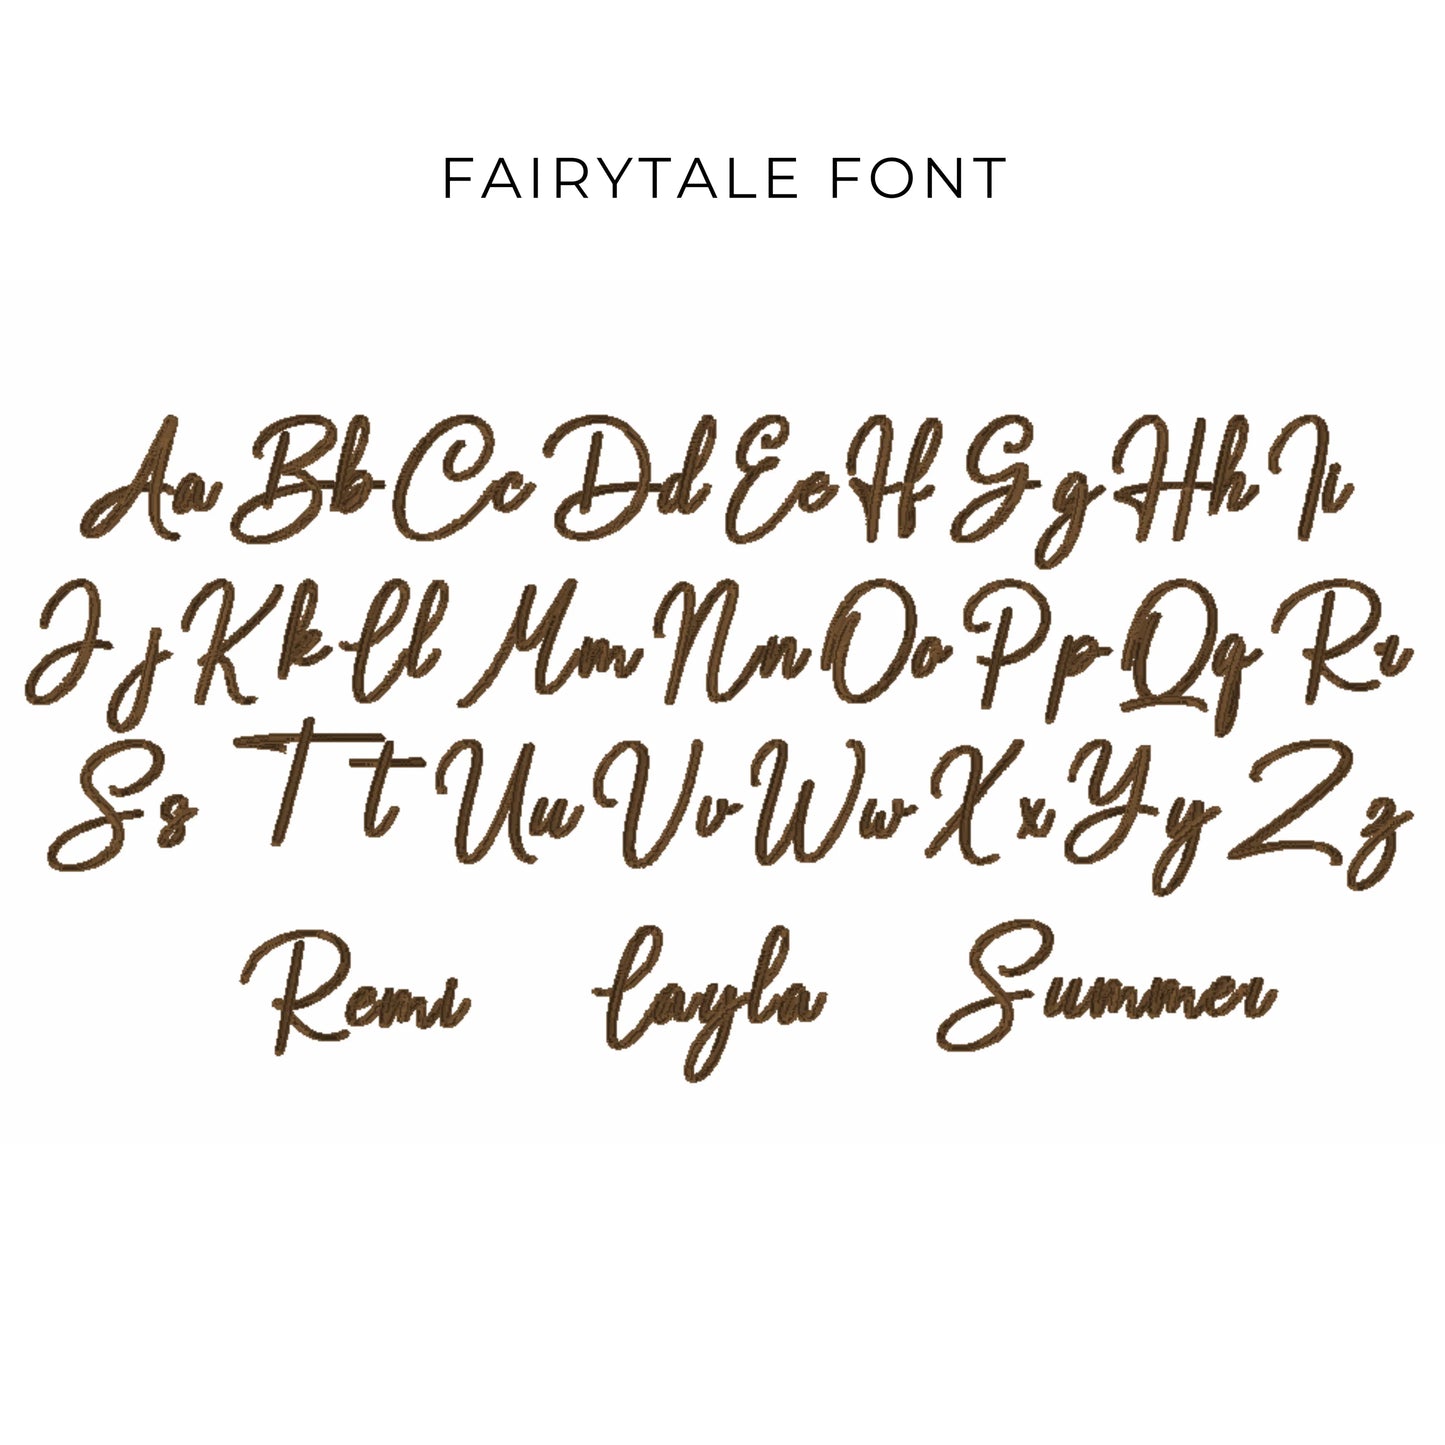 FAIRYTALE FONT
Aa Bb Cc Dd Ee Ff Gg Hh Ii
Jj Kk Ll Mm Nn Oo Pp Qq Rr
Ss Tt Uu Vv Ww Xx Yy Zz
Remi Layla Summer